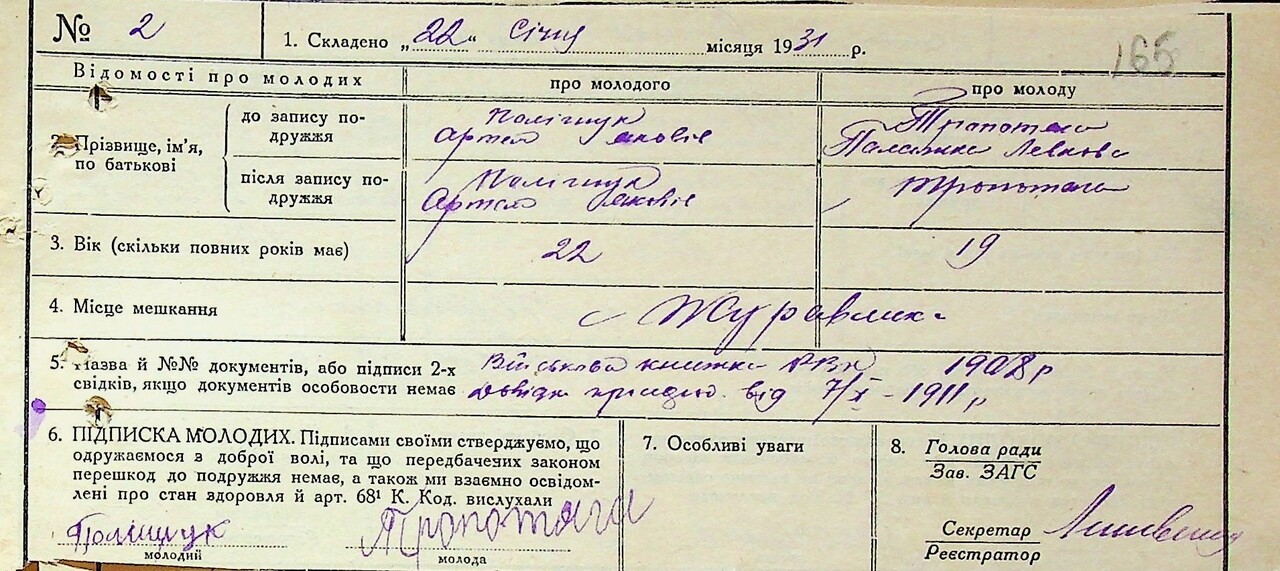 № 2
1. Складено „22“ січня місяця 1931 р.
165
Відомості про молодих
про молодого
про молоду
2. Прізвище, ім’я, по батькові
до запису подружжя
Поліщук
Артем Якович
Тропотяга
Палажка Левкова
після запису подружжя
Поліщук
Артем Якович
Тропотяга
3. Вік (скільки повних років має)
22
19
4. Місце мешкання
с Журавлиха
5. Назва й №№ документів, або підписи 2-х
Військова книжка РВК 1908 р
свідків, якщо документів особовости немає
довідк від 7/X - 1911 р
6. ПІДПИСКА МОЛОДИХ. Підписами своїми стверджуємо, що
одружаємося з доброї волі, та що передбачених законом
перешкод до подружжя немає, а також ми взаємно освідом-
лені про стан здоровля й арт. 68¹ К. Код. вислухали
Поліщук
молодий
Тропотяга
молода
7. Особливі уваги
8. Голова ради
Зав. ЗАГС
Секретар
Реєстратор